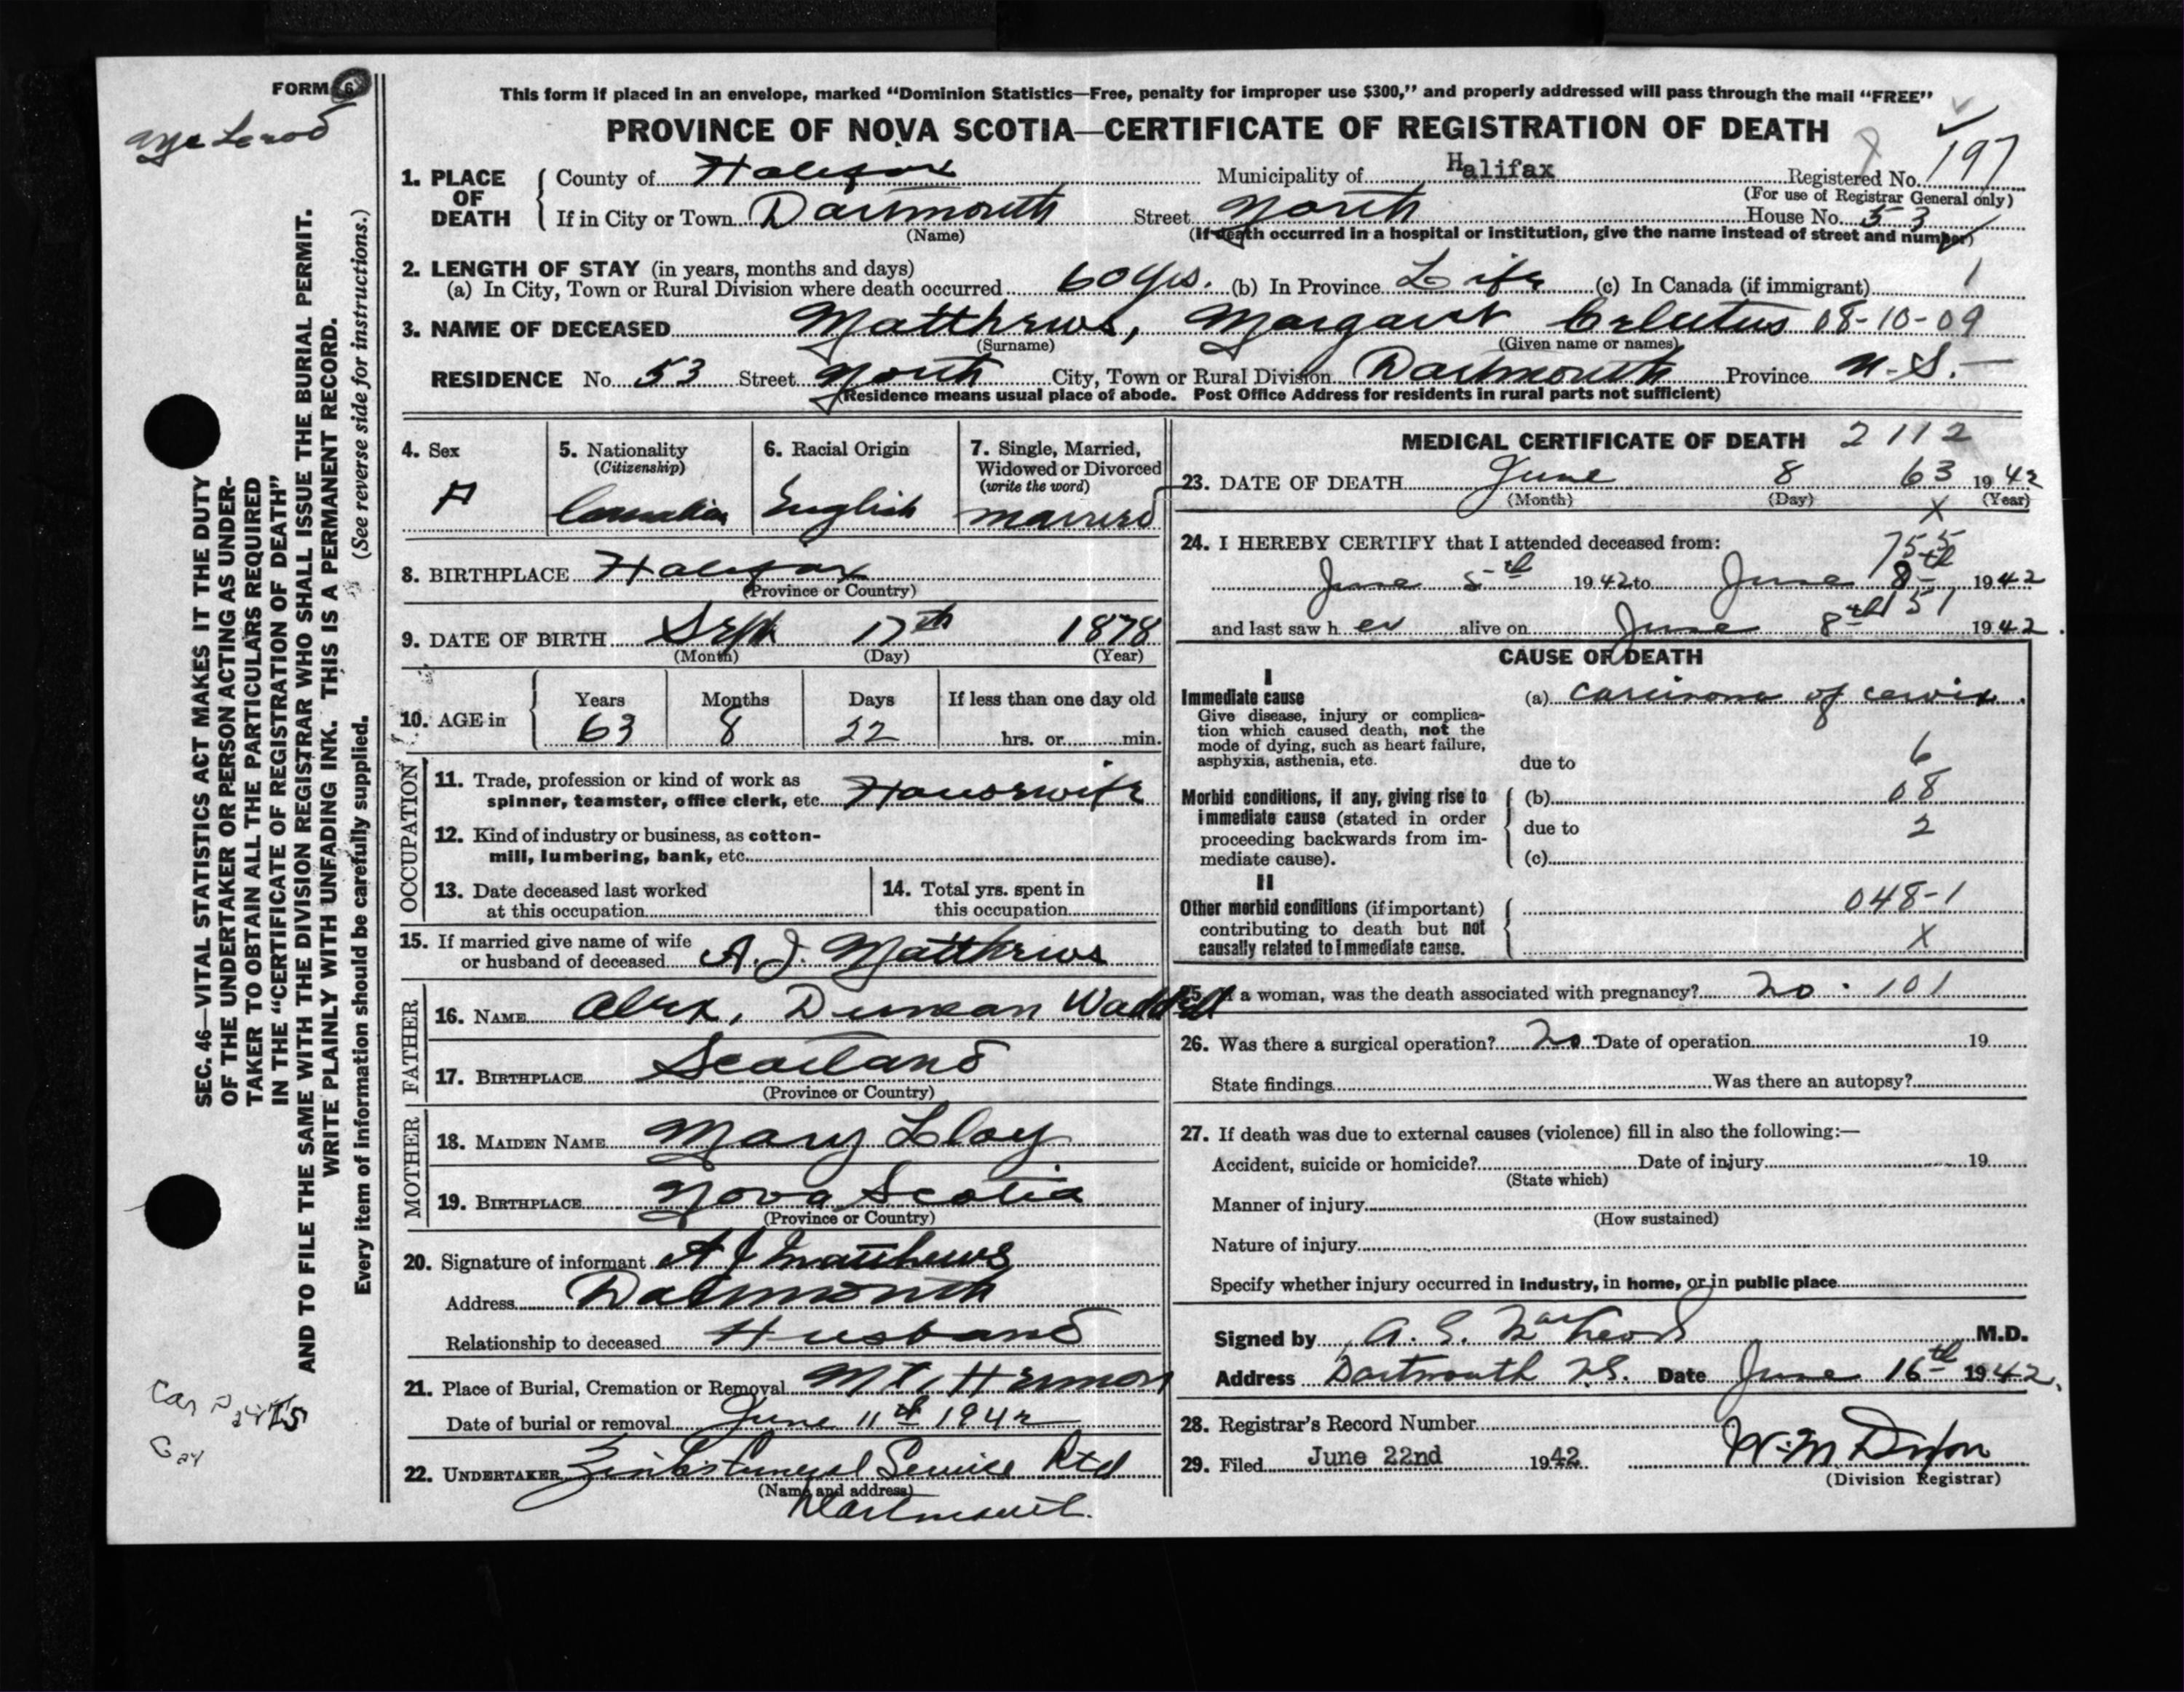 FORM 6
This form if placed in an envelope, marked "Dominion Statistics—Free, penalty for improper use $300," and properly addressed will pass through the mail "FREE"
PROVINCE OF NOVA SCOTIA—CERTIFICATE OF REGISTRATION OF DEATH
197
1. PLACE OF DEATH County of Halifax Municipality of Halifax Registered No.
(For use of Registrar General only)
If in City or Town Dartmouth Street North House No. 53
(Name) (If death occurred in a hospital or institution, give the name instead of street and number)
2. LENGTH OF STAY (in years, months and days)
(a) In City, Town or Rural Division where death occurred 60 yrs. (b) In Province Life (c) In Canada (if immigrant) 1
3. NAME OF DECEASED Matthews, Margaret 08-10-09
(Surname) (Given name or names)
RESIDENCE No. 53 Street North City, Town or Rural Division Dartmouth Province N.S.
(Residence means usual place of abode. Post Office Address for residents in rural parts not sufficient)
4. Sex F
5. Nationality (Citizenship) Canadian
6. Racial Origin English
7. Single, Married, Widowed or Divorced (write the word) married
8. BIRTHPLACE Halifax
(Province or Country)
9. DATE OF BIRTH Sept 17th 1878
(Month) (Day) (Year)
10. AGE in Years Months Days If less than one day old
63 8 22 hrs. or min.
OCCUPATION
11. Trade, profession or kind of work as
spinner, teamster, office clerk, etc. Housewife
12. Kind of industry or business, as cotton-
mill, lumbering, bank, etc.
13. Date deceased last worked
at this occupation
14. Total yrs. spent in
this occupation
15. If married give name of wife
or husband of deceased A. J. Matthews
FATHER
16. NAME Alex, Duncan Waddell
17. BIRTHPLACE Scotland
(Province or Country)
MOTHER
18. MAIDEN NAME Mary Lloy
19. BIRTHPLACE Nova Scotia
(Province or Country)
20. Signature of informant A J Matthews
Address Dartmouth
Relationship to deceased Husband
21. Place of Burial, Cremation or Removal Mt. Hermon
Date of burial or removal June 11th 1942
22. UNDERTAKER Funeral Service Ltd
(Name and address)
Dartmouth.
MEDICAL CERTIFICATE OF DEATH 2112
23. DATE OF DEATH June 8 63 1942
(Month) (Day) (Year)
X
24. I HEREBY CERTIFY that I attended deceased from:
755
June 5th 1942 to June 8th 1942
151
and last saw h er alive on June 8th 1942.
CAUSE OF DEATH
I
Immediate cause (a) carcinoma of cervix.
Give disease, injury or complica-
tion which caused death, not the
mode of dying, such as heart failure,
asphyxia, asthenia, etc.
due to 6
Morbid conditions, if any, giving rise to (b) 08
immediate cause (stated in order due to 2
proceeding backwards from im-
mediate cause). (c)
II
Other morbid conditions (if important) 048-1
contributing to death but not
causally related to immediate cause. X
25. If a woman, was the death associated with pregnancy? No. 101
26. Was there a surgical operation? No. Date of operation 19
State findings Was there an autopsy?
27. If death was due to external causes (violence) fill in also the following:—
Accident, suicide or homicide? Date of injury 19
(State which)
Manner of injury
(How sustained)
Nature of injury
Specify whether injury occurred in industry, in home, or in public place
Signed by A. G. MacLeod M.D.
Address Dartmouth N.S. Date June 16th 1942.
28. Registrar's Record Number
29. Filed June 22nd 1942
W. M. Dixon
(Division Registrar)
SEC. 46—VITAL STATISTICS ACT MAKES IT THE DUTY
OF THE UNDERTAKER OR PERSON ACTING AS UNDER-
TAKER TO OBTAIN ALL THE PARTICULARS REQUIRED
IN THE "CERTIFICATE OF REGISTRATION OF DEATH"
AND TO FILE THE SAME WITH THE DIVISION REGISTRAR WHO SHALL ISSUE THE BURIAL PERMIT.
WRITE PLAINLY WITH UNFADING INK. THIS IS A PERMANENT RECORD.
Every item of information should be carefully supplied. (See reverse side for instructions.)